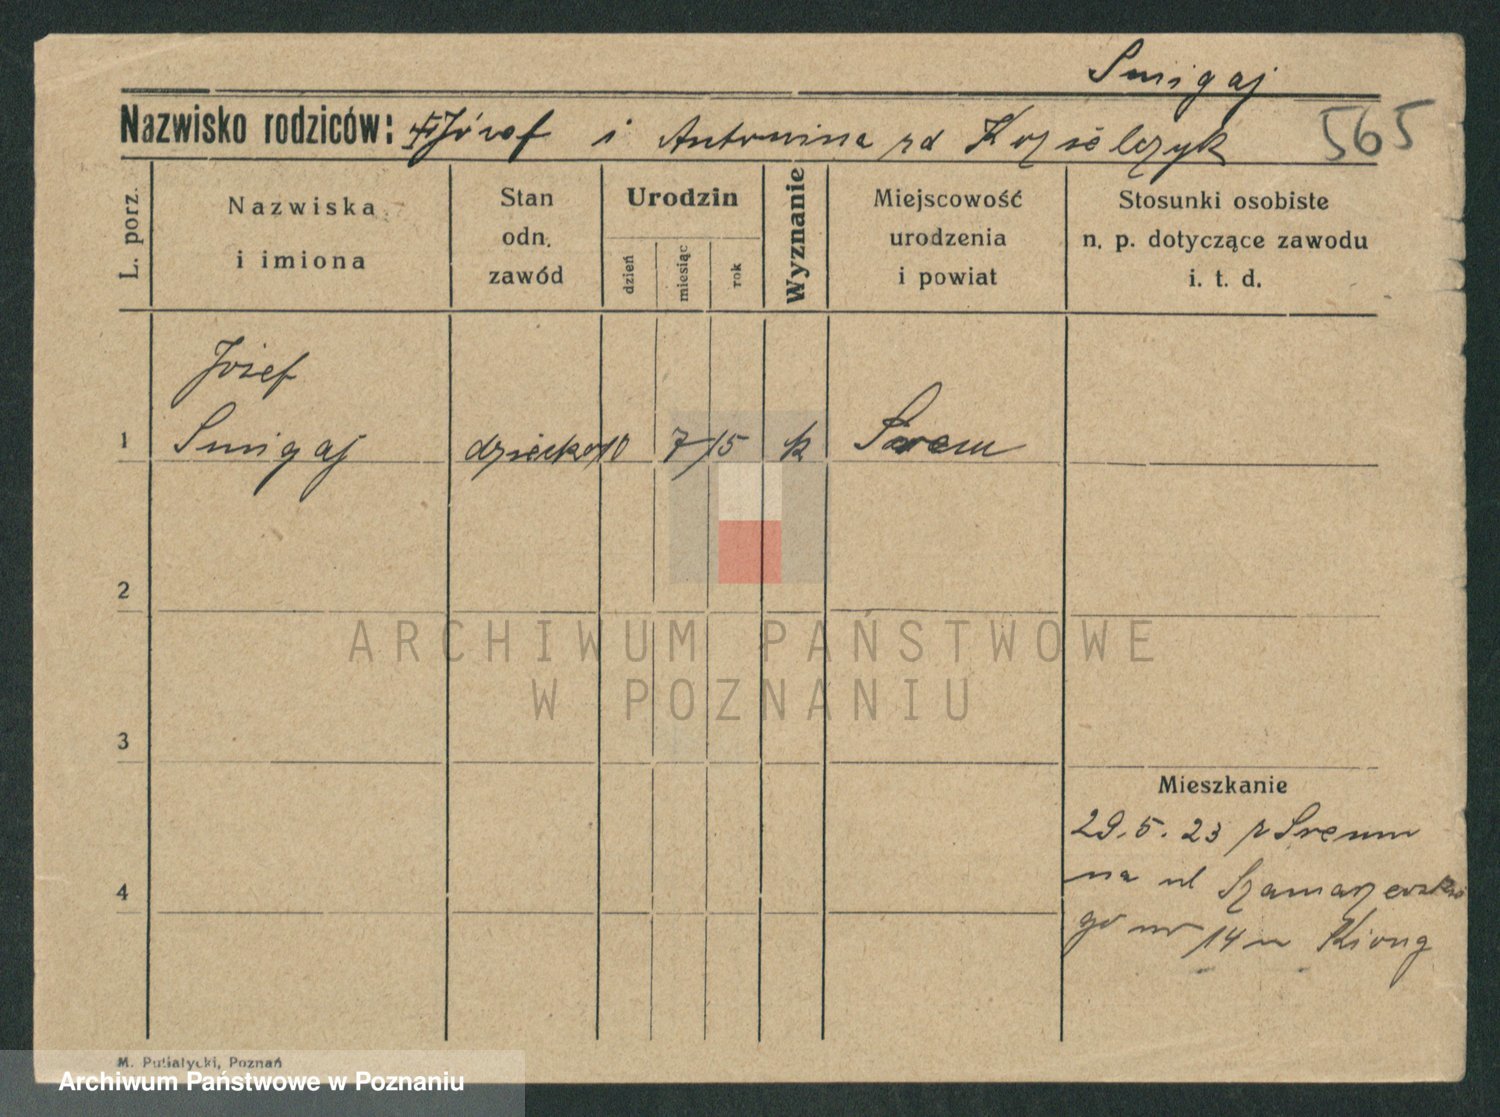 Smigaj
Nazwisko rodziców: Józef i Antonina zd 565
L. porz.
Nazwiska
i imiona
Stan
odn.
zawód
Urodzin
dzień
miesiąc
rok
Wyznanie
Miejscowość
urodzenia
i powiat
Stosunki osobiste
n. p. dotyczące zawodu
i. t. d.
Józef
1 Smigaj dziecko 10 7 15 k Śrem
2
ARCHIWUM PAŃSTWOWE
W POZNANIU
3
Mieszkanie
29.5.23 z Śremu
na ul Szamarzewskie
4
go nr 14 u Kiong
M. Putiatycki, Poznań
Archiwum Państwowe w Poznaniu